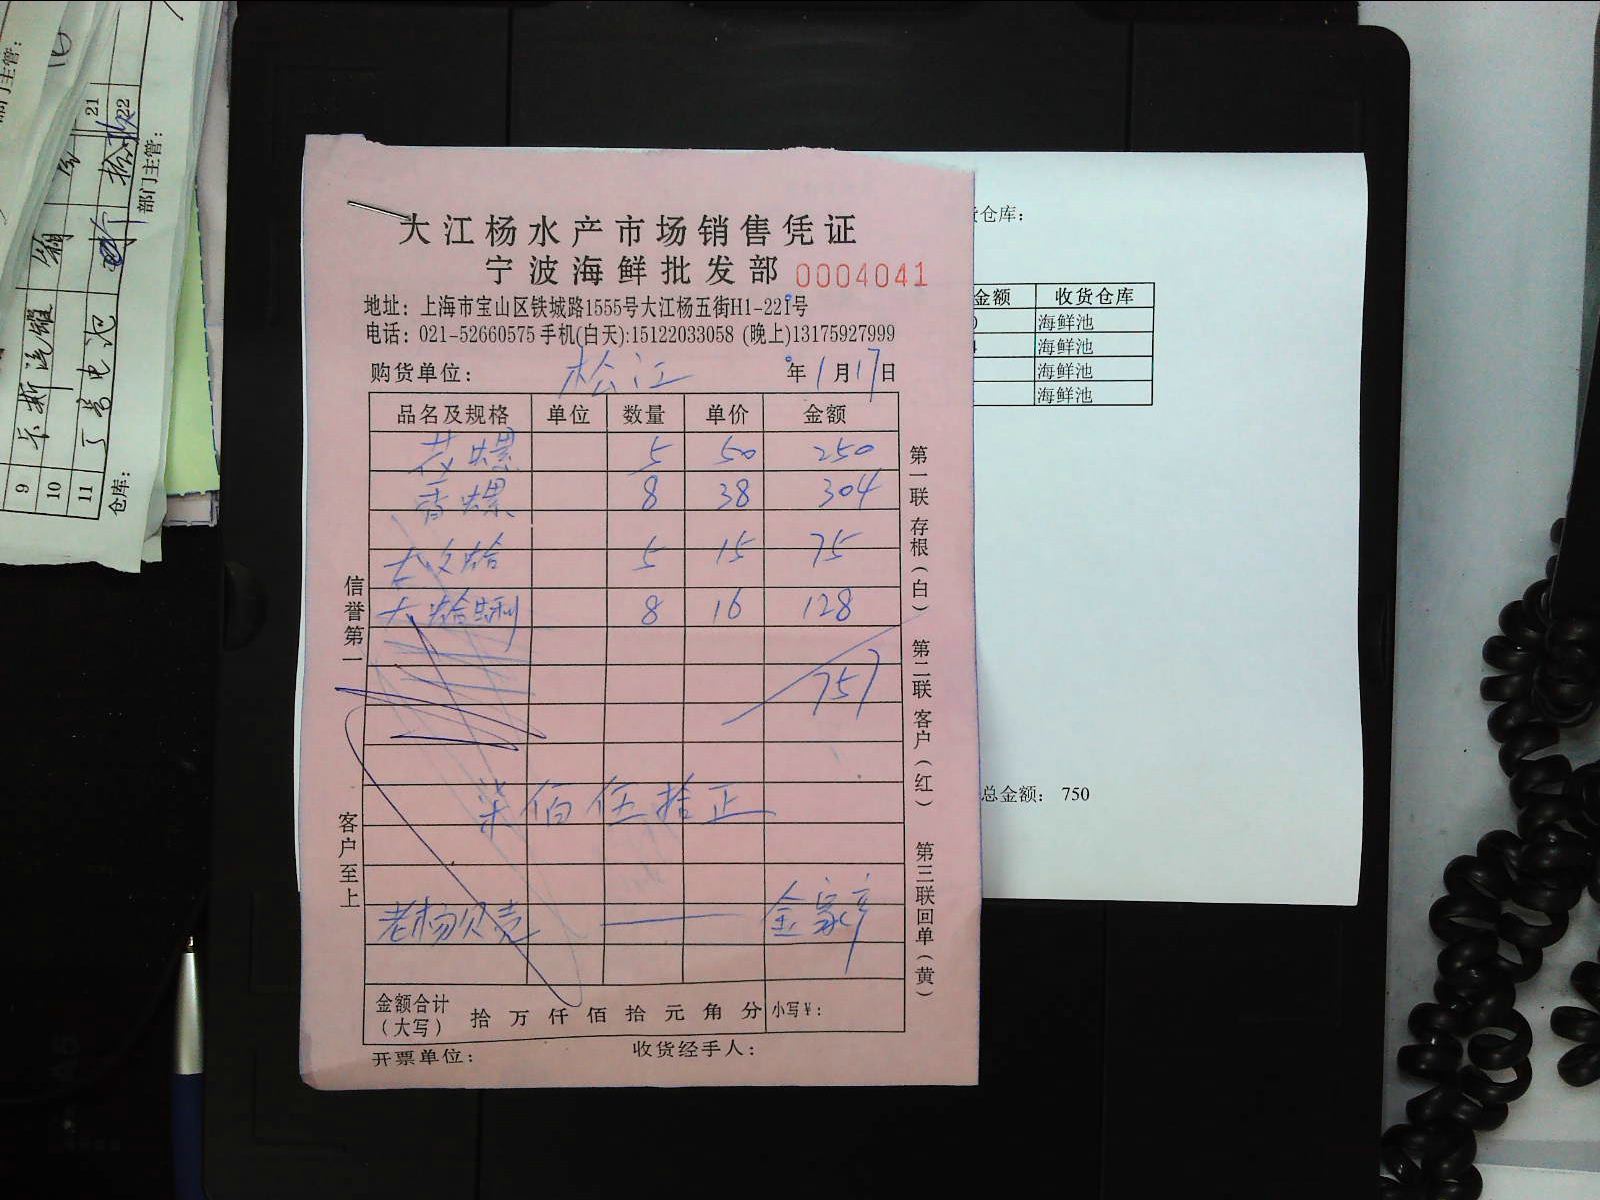 大江杨水产市场销售凭证
宁波海鲜批发部 0004041
地址：上海市宝山区铁城路1555号大江杨五街H1-221号
电话：021-52660575 手机(白天):15122033058 (晚上)13175927999
购货单位： 松江 年 1月17日
品名及规格 单位 数量 单价 金额
花螺 5 50 250
香螺 8 38 304
大文蛤 5 15 75
大蛤蜊 8 16 128
757
柒佰伍拾正
老杨贝壳 — 金家彦
金额合计（大写） 拾 万 仟 佰 拾 元 角 分 小写￥:
开票单位： 收货经手人：
信誉第一 客户至上
第一联存根（白） 第二联客户（红） 第三联回单（黄）
仓库：
金额 收货仓库
海鲜池
海鲜池
海鲜池
海鲜池
总金额： 750
部门主管：
21
22
部门主管：
9
10
11 丁号电池
仓库：